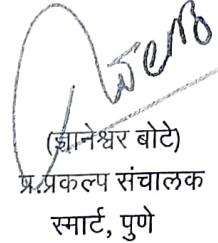 (ज्ञानेश्वर बोटे)
प्र.प्रकल्प संचालक
स्मार्ट, पुणे